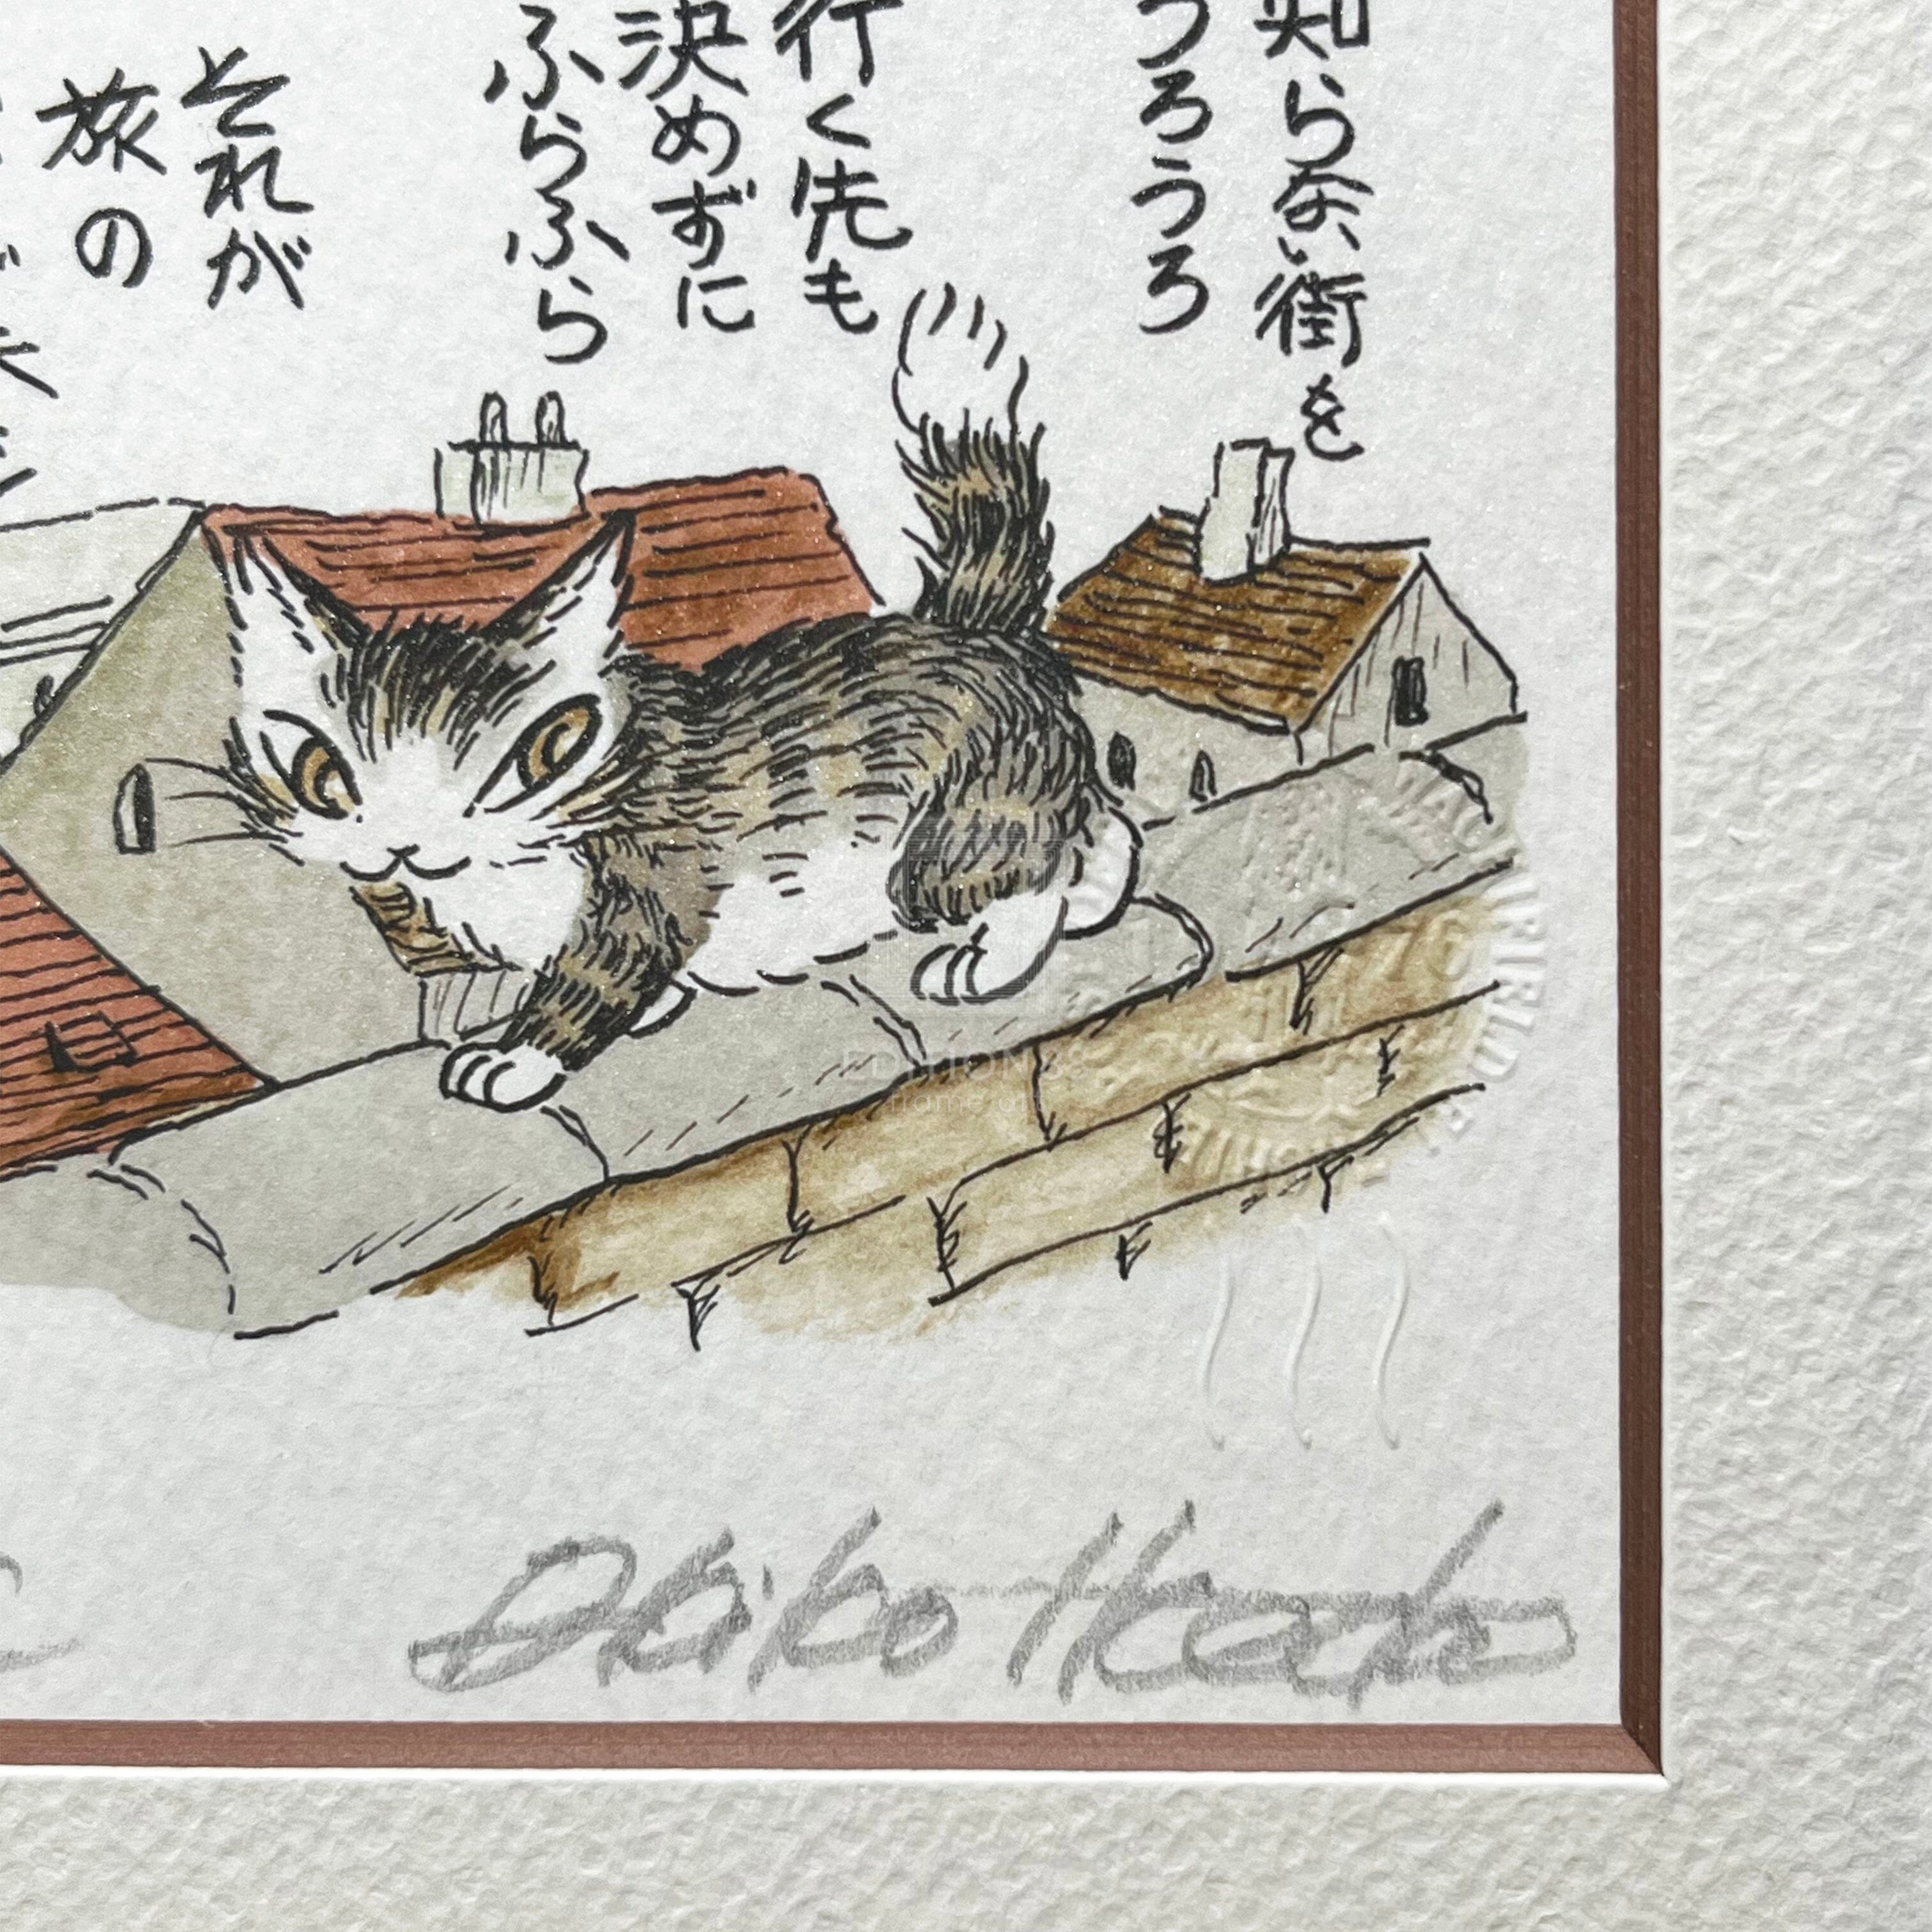 知らない街を
うろうろ
行く先も
決めずに
ふらふら
それが
旅の
Akiko Ikeda
EDITION 88
frame art
76